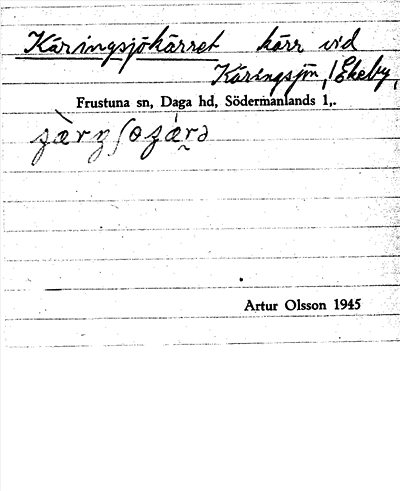 Käringsjökärret kärr vid
Käringsjön, Ekeby,
Frustuna sn, Daga hd, Södermanlands l,.
Artur Olsson 1945